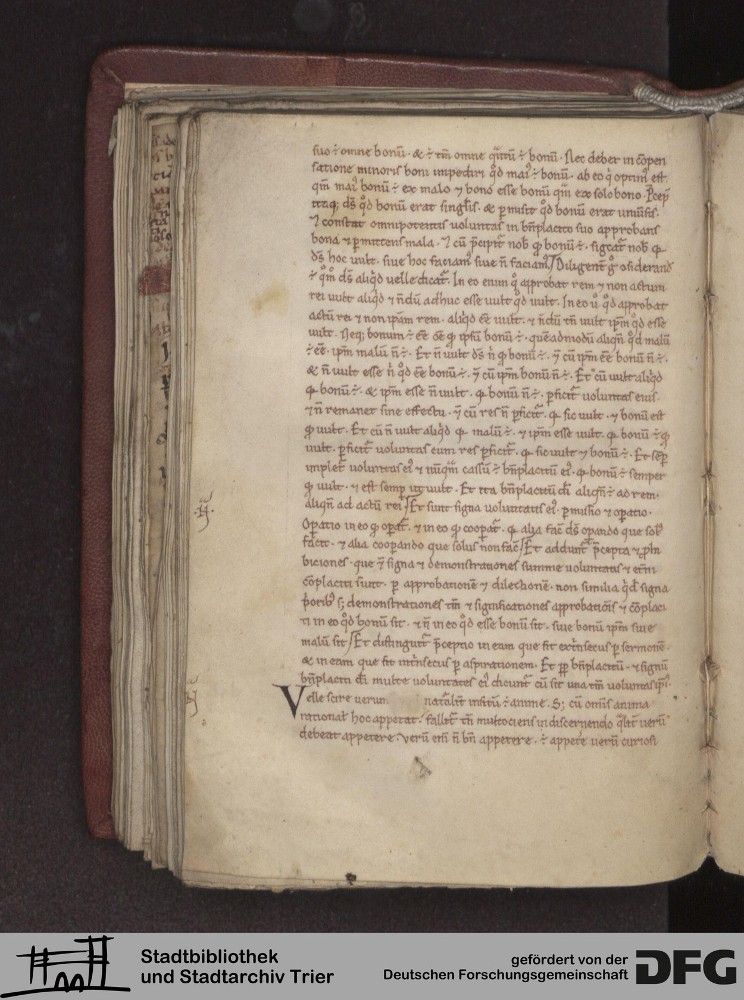 suo ÷ omne bonū. & ÷ tm̄ omne qͣntū ÷ bonū. Nec debet in cōpen
satione minoris boni impediri qd̄ maiꝰ ÷ bonū. ab eo qͥ optimꝰ est.
qm̄ maiꝰ bonū ÷ ex malo ⁊ bono esse bonū qm̄ ex solo bono. P̄cep̄
itaq; ds̄ qd̄ bonū erat singłis. & ꝑmisit qd̄ bonū erat uniūsis.
⁊ constat omnipotentis voluntas in bn̄placito suo approbans
bona ⁊ ꝑmittens mala. ⁊ cū p̄cipit nob̄ ꝙ bonū ÷. sigͨat̄ nob̄ ꝙ
ds̄ hoc uult. siue hoc faciamꝰ siue n̄ faciamꝰ/ Diligent̄ gͦ ↄsiderand
÷ qͦm̄ ds̄ aliqd̄ velle dicat̄. In eo enim qͥ approbat rem ⁊ non actum
rei uult aliqd̄ ⁊ n̄dū adhuc esse uult qd̄ uult. In eo ū qd̄ approbat
actū rei ⁊ non ipam̄ rem. aliqd̄ ēē uult. ⁊ n̄dū tn̄ uult ipm̄ qd̄ esse
uult. Neq; bonum ÷ ēē oē ꝙ ipm̄ bonū ÷. quēadmodū aliqn̄ qd̄ malū
÷ ēē. ipm̄ malū n̄ ÷. Et n̄ uult ds̄ n̄ ꝙ bonū ÷. ⁊ cū ipm̄ ēē bonū n̄ ÷.
& n̄ uult esse n̄ qd̄ ēē bonū ÷. ⁊ cū ipm̄ bonū n̄ ÷. Et cū uult aliqd̄
ꝙ bonū ÷. & ipm̄ esse n̄ uult. ꝙ bonū n̄ ÷. ꝑficit̄ voluntas eius.
⁊ n̄ remanet sine effectu. ⁊ cū res n̄ ꝑficit̄. ꝙ sic uult. ⁊ bonū est
ꝙ uult. Et cū n̄ uult aliqd̄ ꝙ malū ÷. ⁊ ipm̄ esse uult. ꝙ bonū ÷ ꝙ
uult. ꝑficit̄ voluntas cum res ꝑficit̄. ꝙ sic uult ⁊ bonū ÷. Et semꝑ
implet̄ voluntas eiꝰ ⁊ nūqͣm cassū ÷ bn̄placitū eiꝰ. ꝙ bonū ÷ semper
ꝙ uult. ⁊ est semꝑ ut uult. Et ita bn̄placitū dī aliqn̄ ÷ ad rem.
aliqn̄ ad actū rei/ Et sunt signa voluntatis eiꝰ. ꝑmissio ⁊ oꝑatio.
Oꝑatio in eo ꝙ oꝑat̄. ⁊ in eo ꝙ cooꝑat̄. ꝙ alia fac̄ ds̄ oꝑando que solꝰ
facit. ⁊ alia cooꝑando que solus non fac̄/ Et addunt̄ p̄cepta ⁊ ꝓhi
biciones. que ⁊ signa ⁊ demonstrationes summe voluntatis ⁊ et̄ni
cōplaciti sunt. ꝑ approbationē ⁊ dilectionē. non similia qͥd̄ signa
p̄orib; s; demonstrationes tm̄ ⁊ significationes approbatiōis ⁊ cōplaci
ti in eo qd̄ bonū sit. ⁊ n̄ in eo qd̄ esse bonū sit. siue bonū ipm̄ siue
malū sit/ Et distinguit̄ p̄ceptio in eam que fit ext̄nsecus ꝑ sermonē.
& in eam que fit int̄nsecus ꝑ aspirationem. Et ꝓp̄ bn̄placitū. ⁊ signū
bn̄placiti dī multe voluntates eiꝰ dicunt̄ cū sit una tm̄ voluntas ipsiꝰ.
Velle scire uerum nat̄alit̄ insitū ÷ anime. S; cū om̄is anima
rationał hoc appetat. fallit̄ tn̄ multociens in discernendo qͣlit̄ uerū
debeat appetere. verū eni n̄ bn̄ appetere. ÷ appete uerū curiosi
Stadtbibliothek
und Stadtarchiv Trier
gefördert von der
Deutschen Forschungsgemeinschaft
DFG